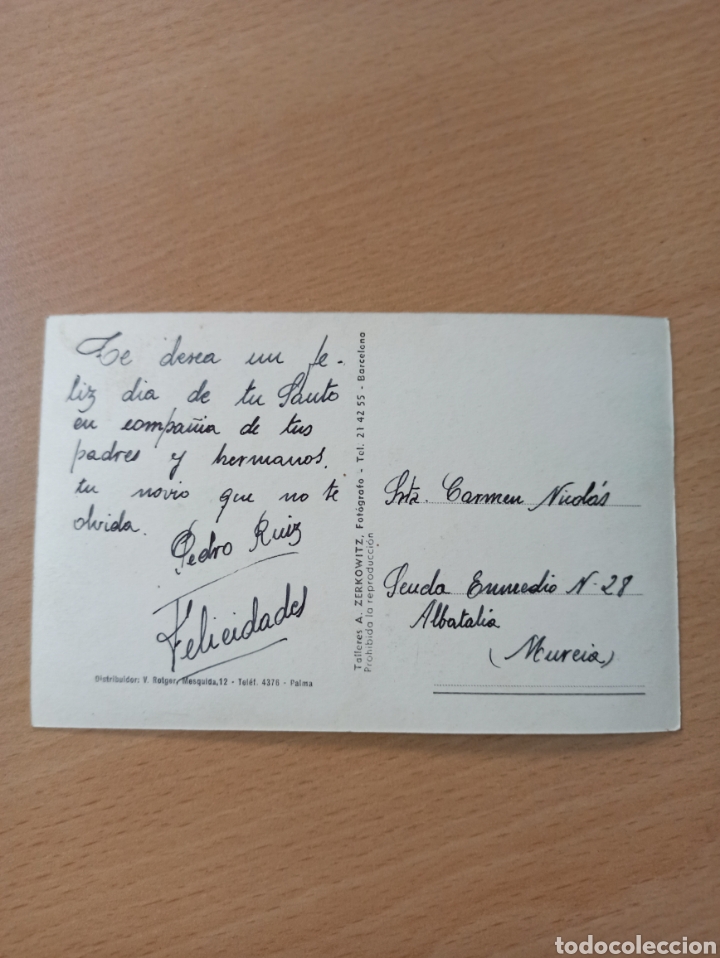 Te desea un fe-
liz dia de tu Santo
en compañia de tus
padres y hermanos,
tu novio que no te
olvida.
Pedro Ruiz
Felicidades
Distribuidor: V. Rotger, Mesquida, 12 - Teléf. 4376 - Palma
Talleres A. ZERKOWITZ, Fotógrafo - Tel. 21 42 55 - Barcelona
Prohibida la reproducción
Srta. Carmen Nicolás
Senda Enmedio N-28
Albatalia
(Murcia)
todocoleccion